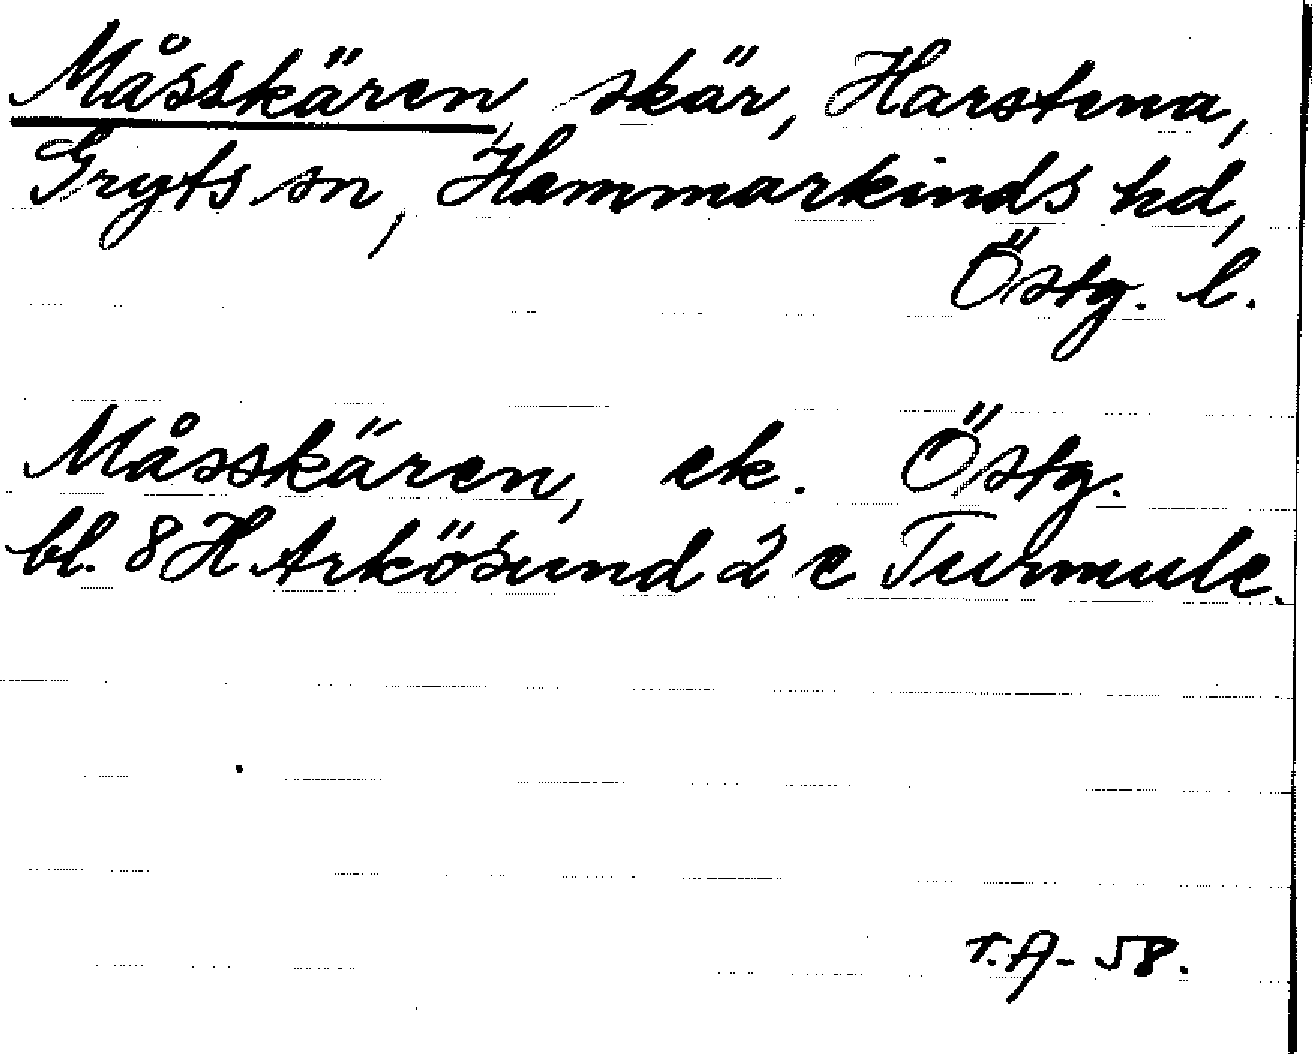 Måsskären, skär, Harstena,
Gryts sn, Hammarkinds hd,
Östg. l.
Måsskären, ek. Östg.
bl. 8 H Arkösund 2 c Turmule.
T.A- 58.